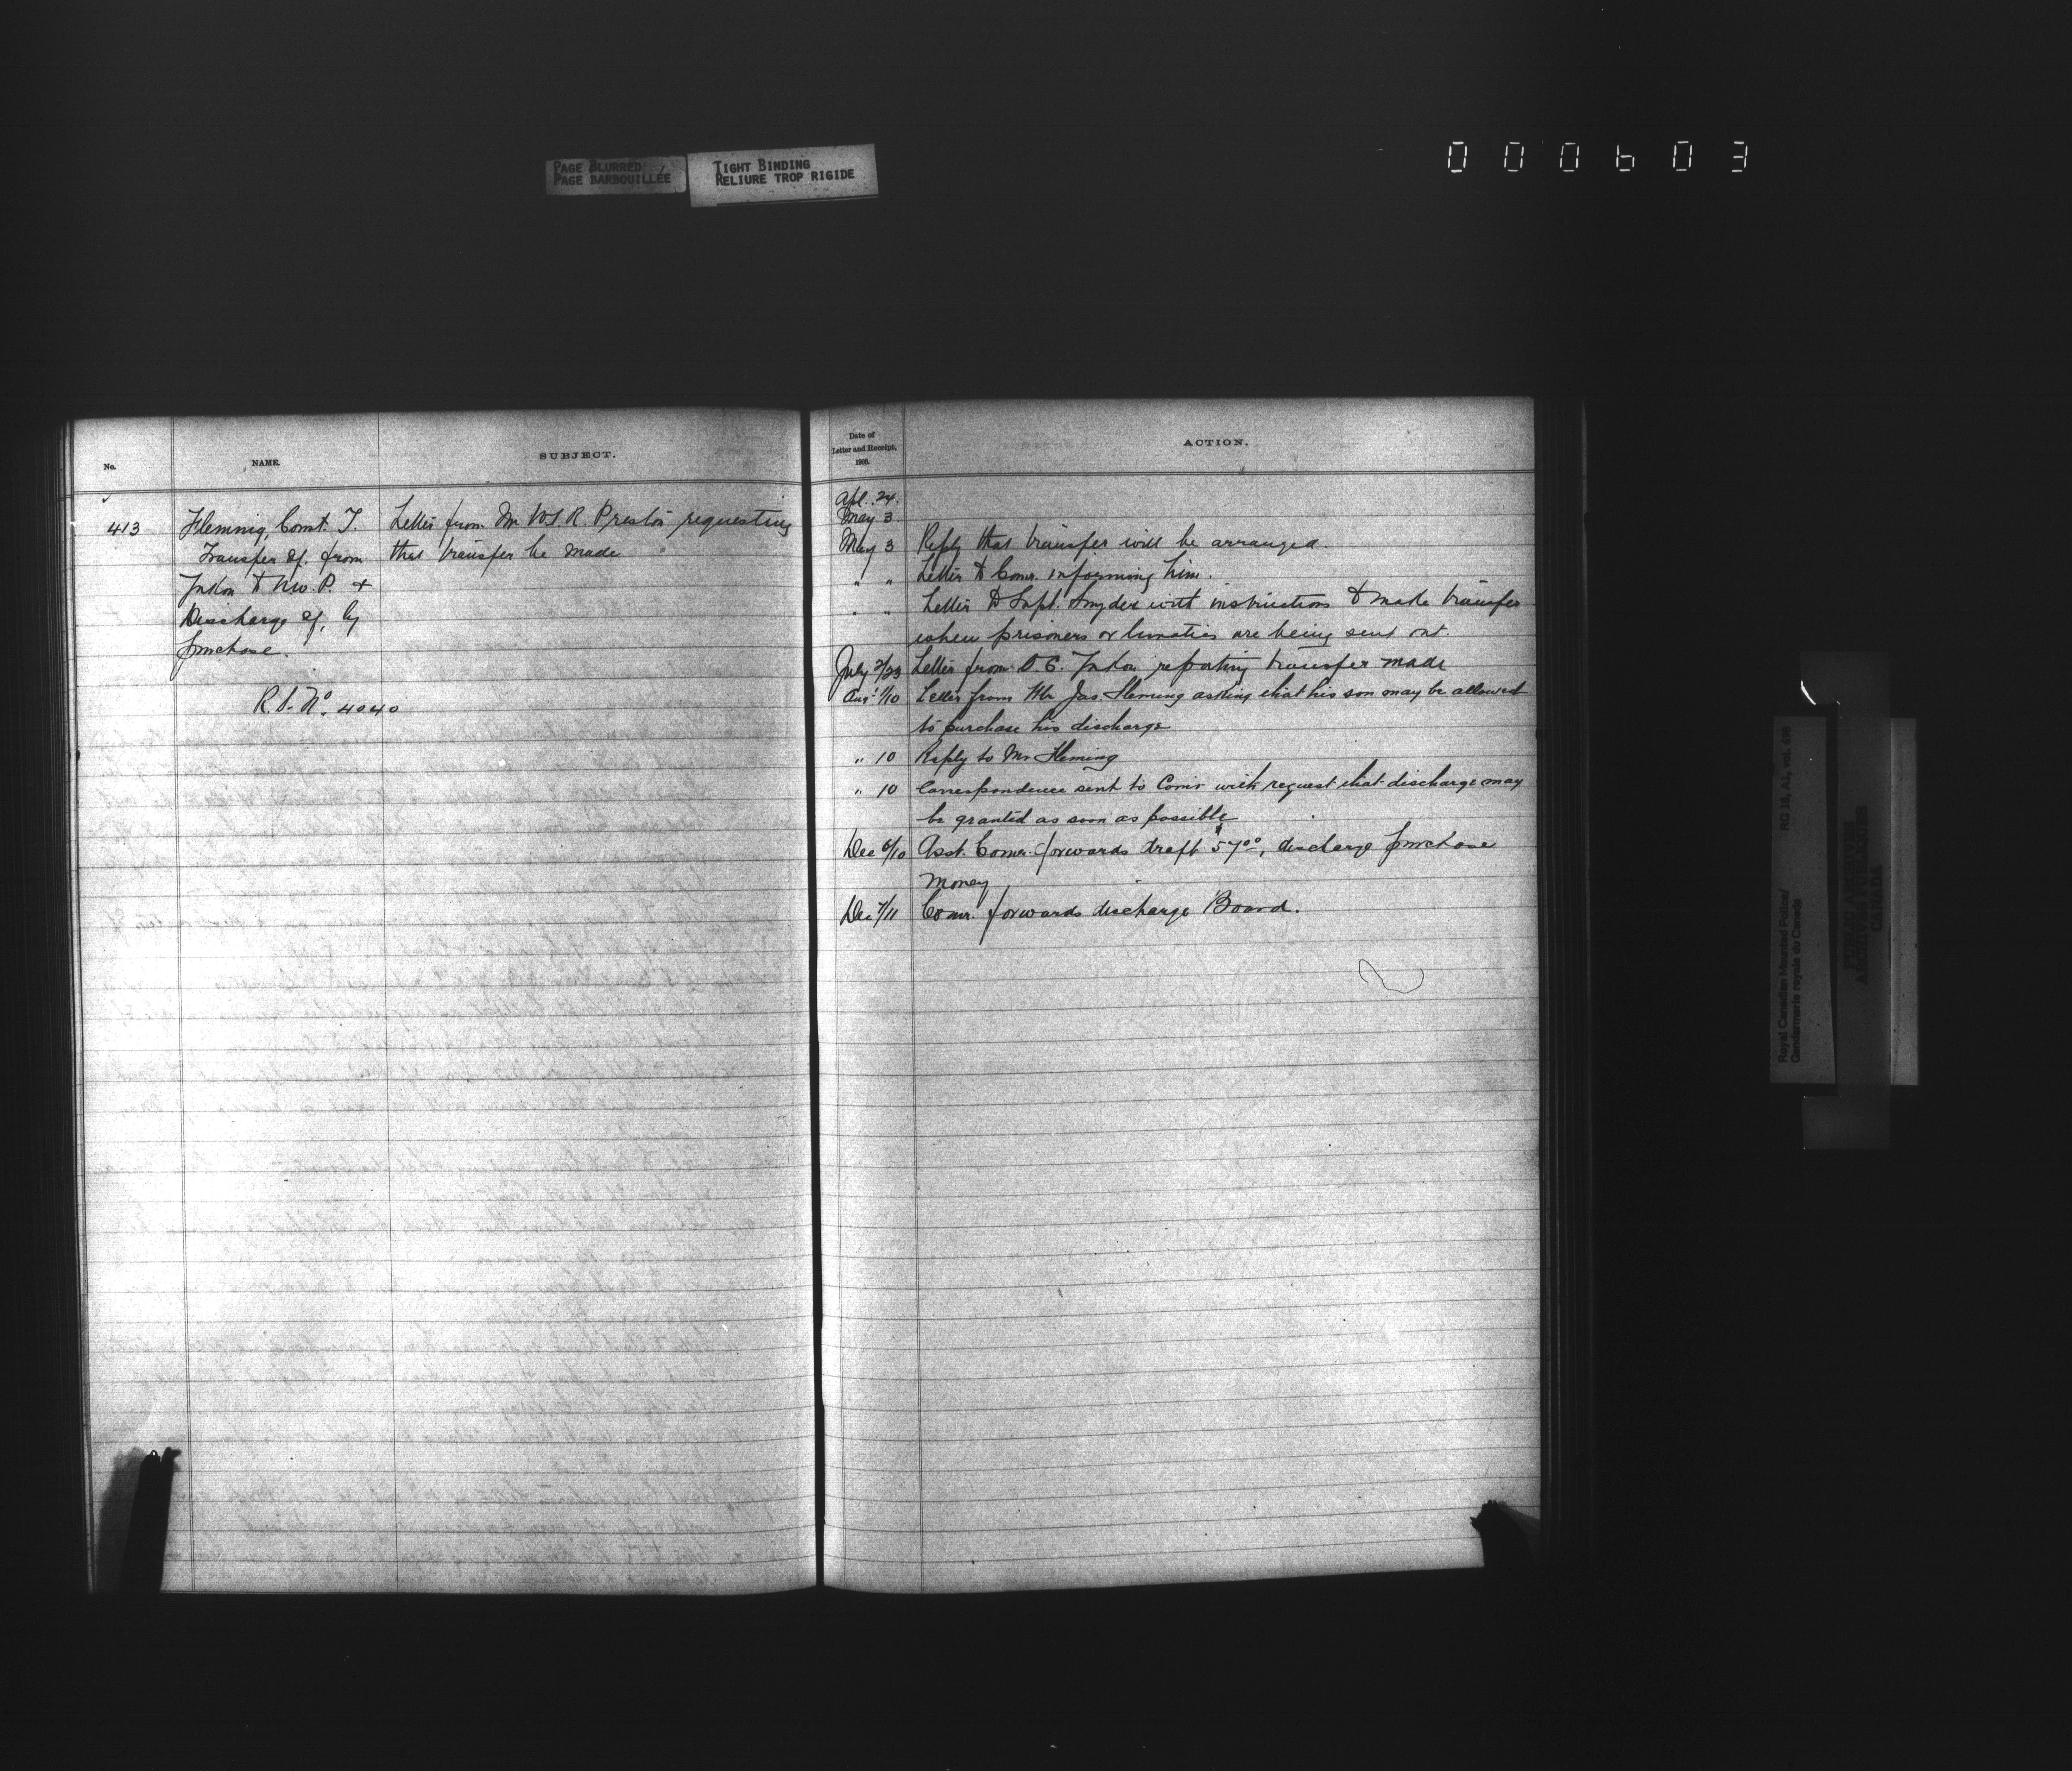 PAGE BLURRED
PAGE BARBOUILLÉE
TIGHT BINDING
RELIURE TROP RIGIDE
000603
No.
NAME.
SUBJECT.
413
Fleming, Const. T.
Transfer of. from
Yukon to N.W.P. +
Discharge of, by
purchase.
R.D. No. 4040
Letter from Mr W.T.R. Preston requesting
that transfer be made
Date of
Letter and Receipt,
1906.
ACTION.
Apl. 24.
May 3
May 3 Reply that transfer will be arranged.
" " Letter to Comr. informing him.
" " Letter to Supt. Snyder with instructions to make transfer
when prisoners or lunatics are being sent out.
July 2/23 Letter from O.C. Yukon reporting transfer made
Aug 1/10 Letter from Mr Jas Fleming asking that his son may be allowed
to purchase his discharge
" 10 Reply to Mr Fleming
" 10 Correspondence sent to Comr with request that discharge may
be granted as soon as possible
Dec 6/10 Asst. Comr. forwards draft $57.00, discharge purchase
money
Dec 7/11 Comr. forwards discharge Board.
Royal Canadian Mounted Police/
Gendarmerie royale du Canada
RG 18, A1, vol. 698
PUBLIC ARCHIVES
ARCHIVES PUBLIQUES
CANADA